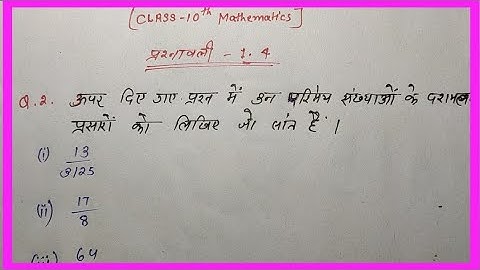 [CLASS-10th Mathematics]
प्रश्नावली - 1.4
Q.2. ऊपर दिए गए प्रश्न में उन परिमेय संख्याओं के दशमलव
प्रसारों को लिखिए जो सांत हैं ।
(i) 13/3125
(ii) 17/8
(iii) 64